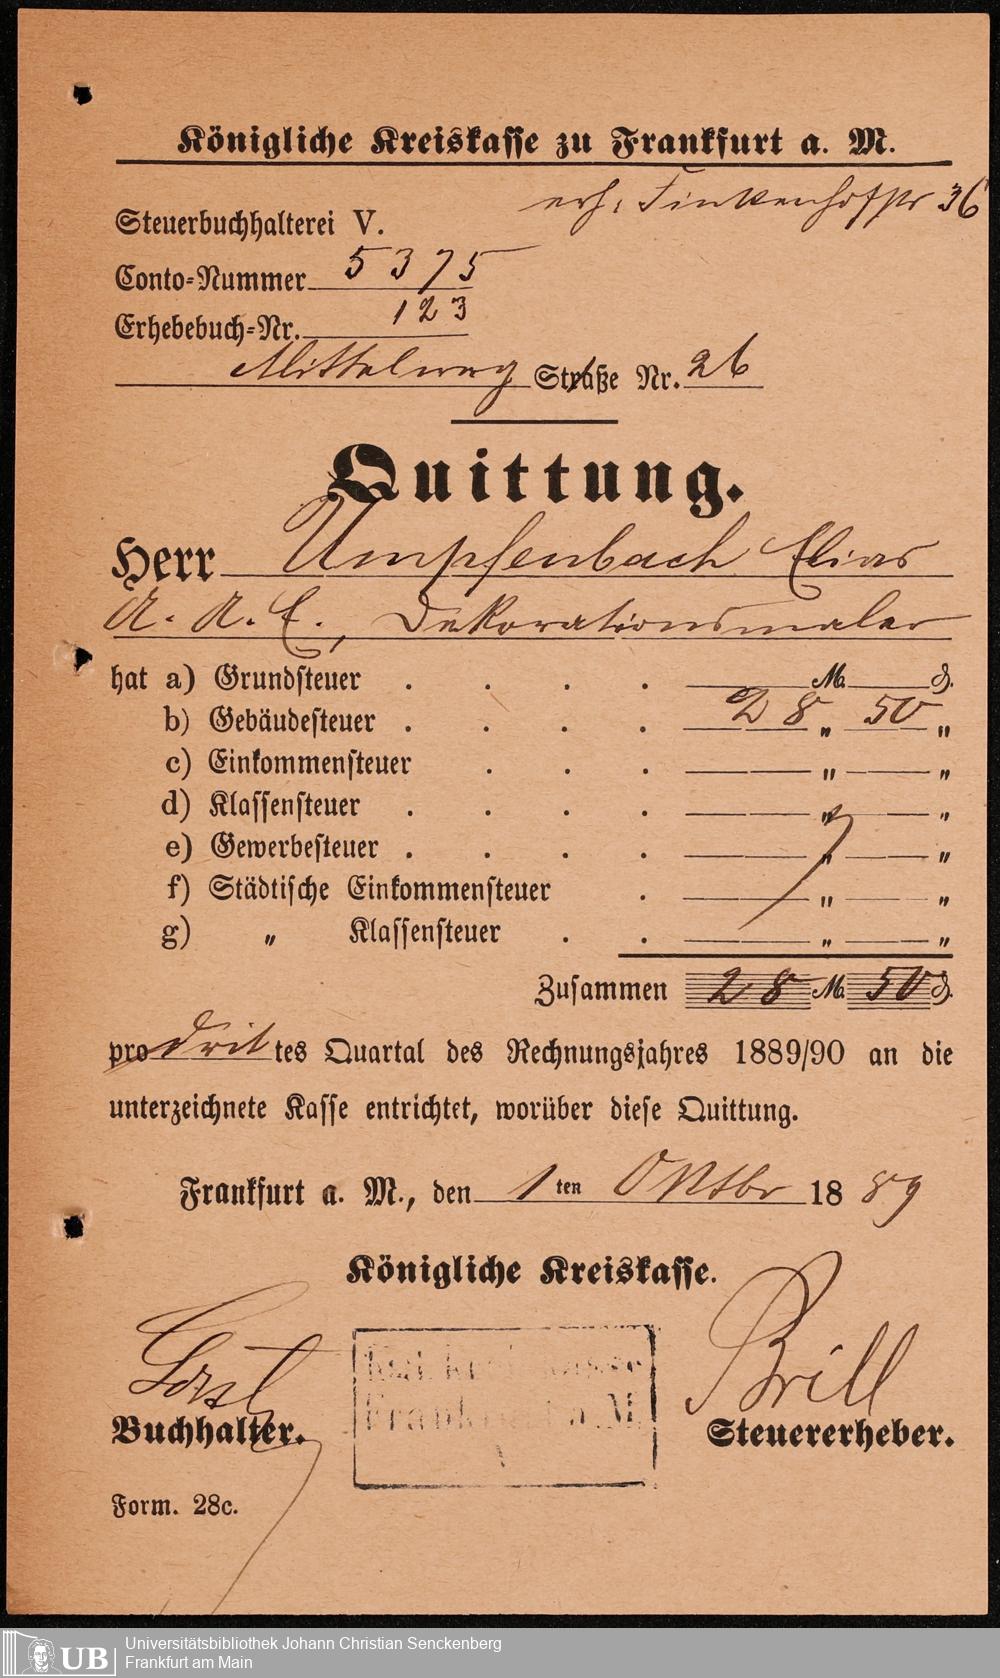 Königliche Kreiskasse zu Frankfurt a. M.
erh. Finkenhofstr 36
Steuerbuchhalterei V.
Conto-Nummer 5375
Erhebebuch-Nr. 123
Mittelweg Straße Nr. 26
Quittung.
Herr Umpfenbach Elias
A. A. E., Dekorationsmaler
hat a) Grundsteuer . . . . M. ₰.
b) Gebäudesteuer . . . . 28 „ 50 „
c) Einkommensteuer . . . „ „
d) Klassensteuer . . . . „ „
e) Gewerbesteuer . . . . „ „
f) Städtische Einkommensteuer . „ „
g) „ Klassensteuer . . „ „
Zusammen 28 M. 50 ₰.
pro drittes Quartal des Rechnungsjahres 1889/90 an die
unterzeichnete Kasse entrichtet, worüber diese Quittung.
Frankfurt a. M., den 1ten Oktbr 1889
Königliche Kreiskasse.
Brill
Kgl. Kreiskasse
Frankfurt a. M.
Buchhalter. Steuererheber.
Form. 28c.
UB Universitätsbibliothek Johann Christian Senckenberg
Frankfurt am Main